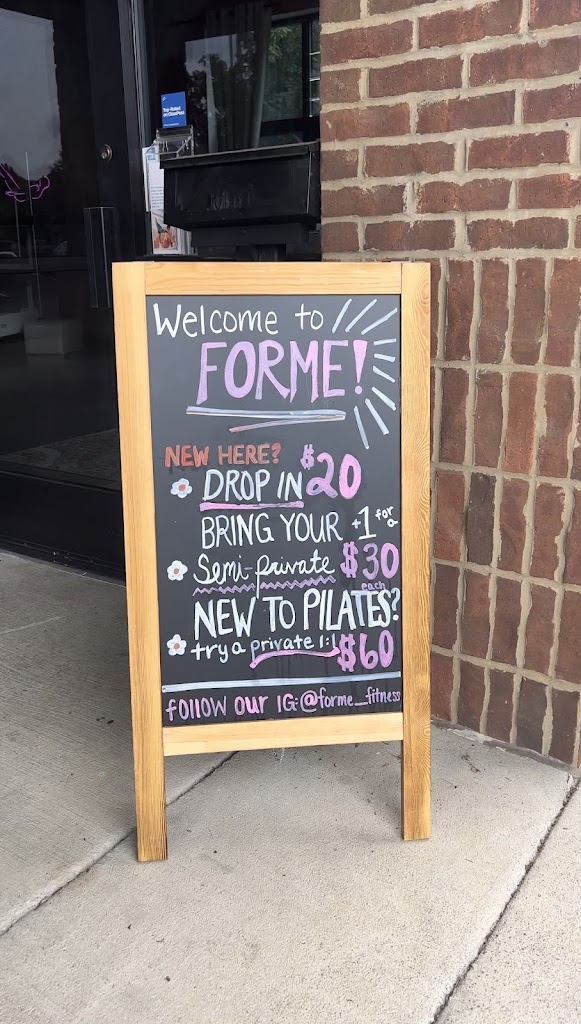 Top-Rated
on ClassPass
Welcome to
FORME!
NEW HERE?
DROP IN $20
BRING YOUR +1 for a
Semi-private $30
each
NEW TO PILATES?
try a private 1:1 $60
follow our IG:@forme_fitness